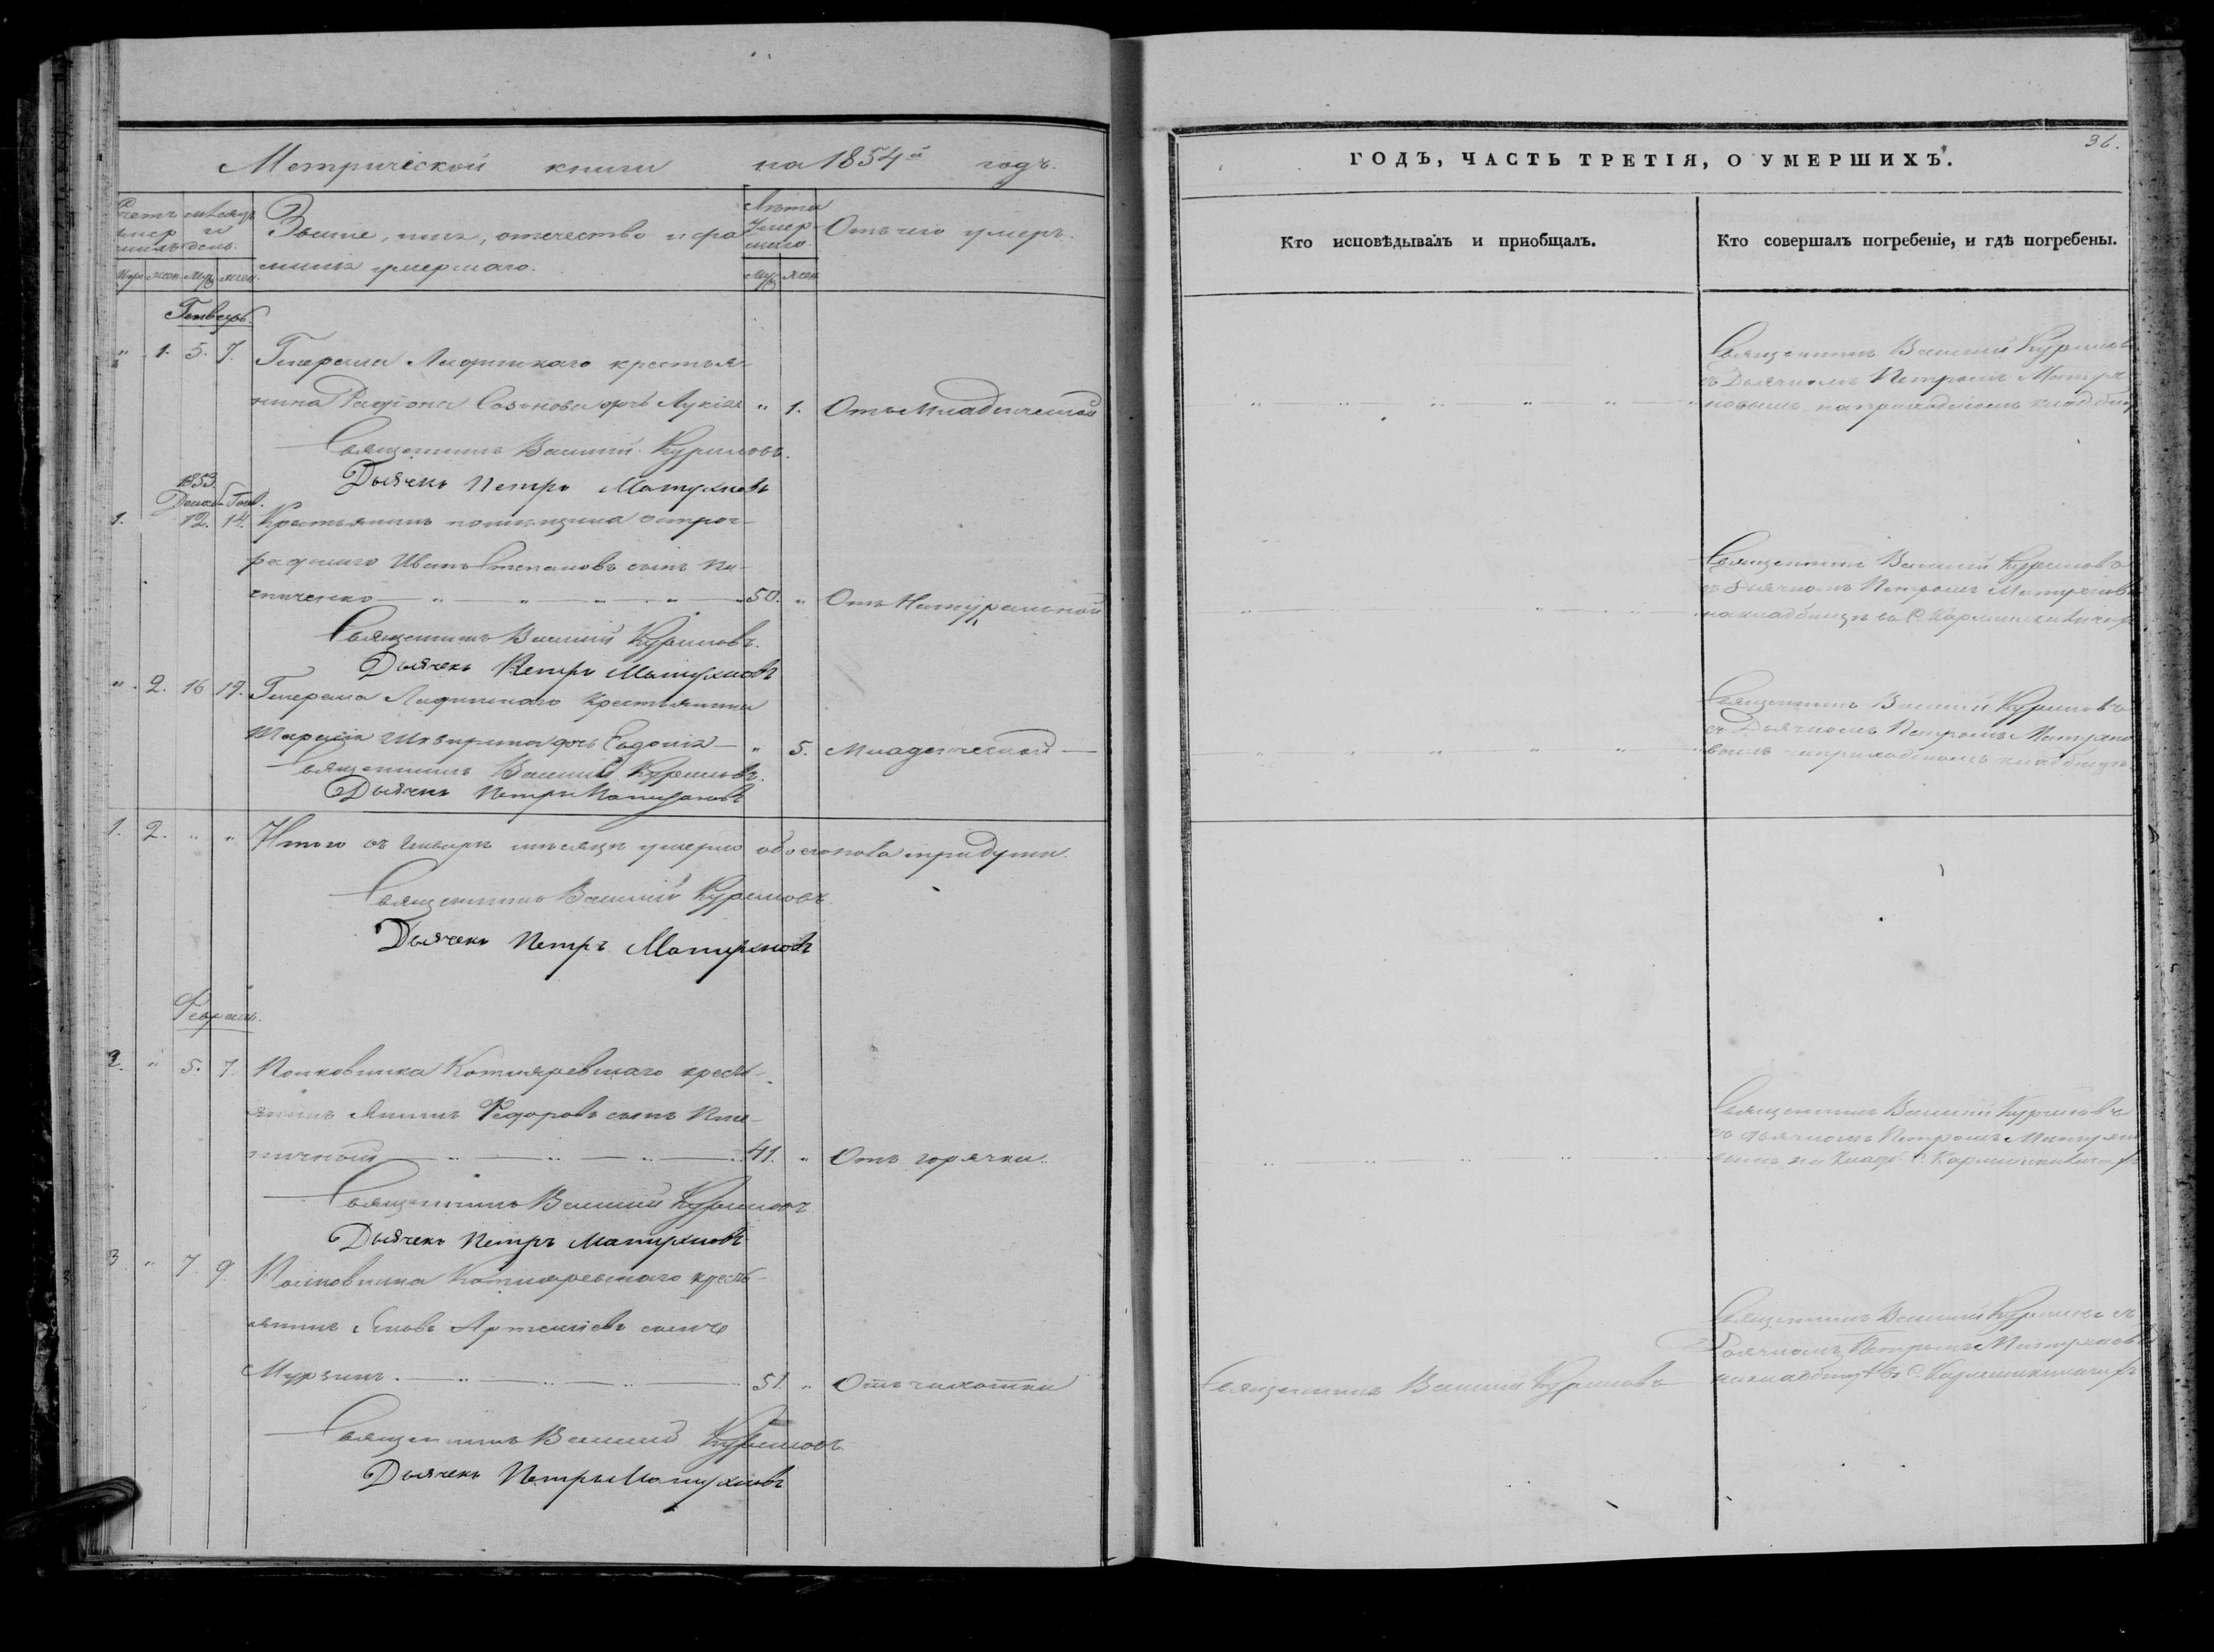 Метрической книги на 1854й годъ.
Счетъ умершихъ
мѣсяцъ и день.
Званіе, имя, отечество и фамилія умершаго.
Лѣта умершаго.
Отъ чего умеръ.
муж. жен. муж. жен.
муж. жен.
Генварь.
" 1. 5. 7. Генерала крестья-
нина Родіона Созонова дочь Лукія " 1. Отъ Младенческой
Священникъ Василій Куриловъ.
Дьячекъ Петръ Матухновъ
1853.
Декаб. Генв.
1. 12. 14. Крестьянинъ помѣщика Остро-
градскаго Иванъ Степановъ сынъ
50. " Отъ Натуральной
Священникъ Василій Куриловъ.
Дьячекъ Петръ Матухновъ
" 2. 16 19. Генерала крестьянина
дочь Евдокія — " 5. Младенческой —
Священникъ Василій Куриловъ.
Дьячекъ Петръ Матухновъ
1. 2. " " Итого въ Генварѣ мѣсяцѣ умерло обоего пола три души.
Священникъ Василій Куриловъ.
Дьячекъ Петръ Матухновъ
Февраль.
2. " 5. 7. Полковника Котляревскаго кресть-
янинъ Федоровъ сынъ
41. " Отъ горячки.
Священникъ Василій Куриловъ
Дьячекъ Петръ Матухновъ
3 " 7. 9. Полковника Котляревскаго кресть-
янинъ Яковъ Артемьевъ сынъ
Мурзинъ. 51. " Отъ чахотки
Священникъ Василій Куриловъ
Дьячекъ Петръ Матухновъ
36.
ГОДЪ, ЧАСТЬ ТРЕТІЯ, О УМЕРШИХЪ.
Кто исповѣдывалъ и пріобщалъ.
Кто совершалъ погребеніе, и гдѣ погребены.
Священникъ Василій Куриловъ
съ Дьячкомъ Петромъ Матух-
новымъ на приходскомъ кладбищѣ
Священникъ Василій Куриловъ
съ Дьячкомъ Петромъ Матухновы
на кладбищѣ въ С.
Священникъ Василій Куриловъ
съ Дьячкомъ Петромъ Матухно
вымъ на приходскомъ кладбищѣ
Священникъ Василій Куриловъ
съ Дьячкомъ Петромъ Матухно
вымъ на кладб. С.
Священникъ Василій Куриловъ съ
Дьячкомъ Петромъ Матухнов
Священникъ Василій Куриловъ
на кладбищѣ въ С.